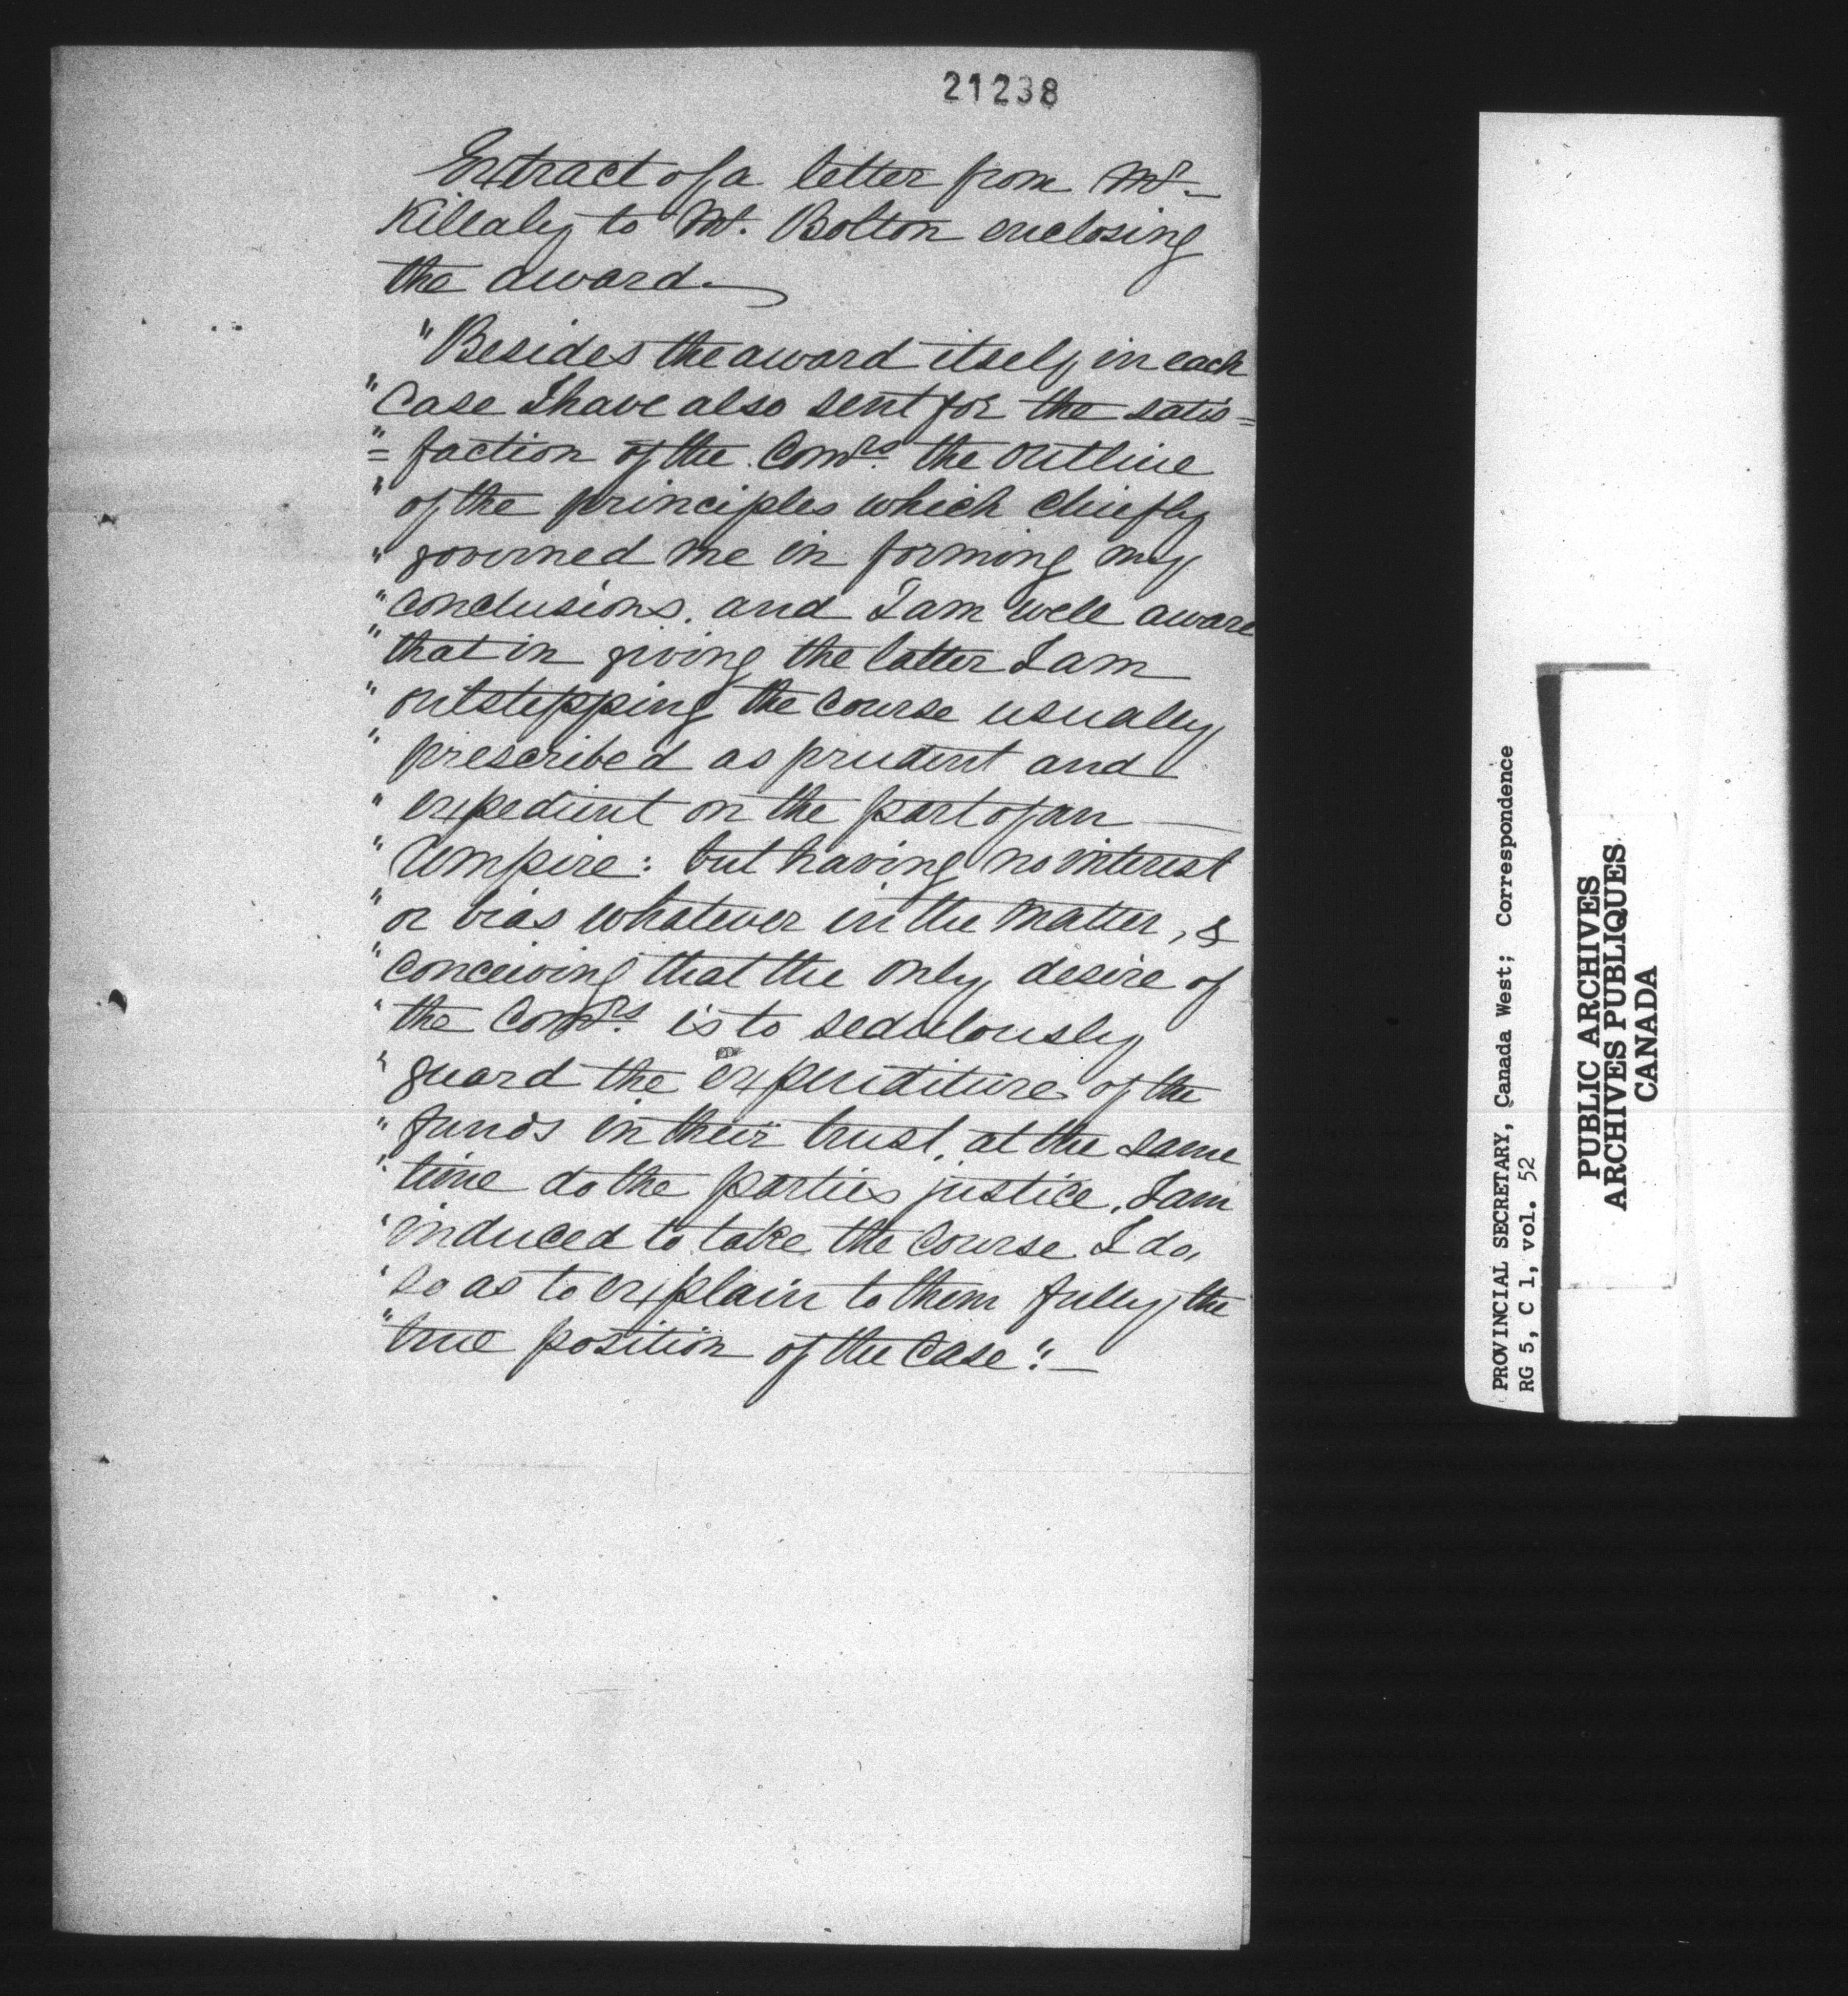 21238
Extract of a letter from Mr.
Killaly to Mr. Bolton enclosing
the award.
"Besides the award itself, in each
"Case I have also sent for the satis=
"=faction of the Comrs. the outline
"of the principles which chiefly
"governed me in forming my
"conclusions. and I am well aware
"that in giving the latter I am
"outstepping the course usually
"prescribed as prudent and
"expedient on the part of an —
"Umpire: but having no interest
"or bias whatever in the matter, &
"conceiving that the only desire of
"the Comrs. is to sedulously
"guard the expenditure of the
"funds in their trust, at the same
"time do the parties justice, I am
"induced to take the course I do,
"so as to explain to them fully, the
"true position of the Case". —
PROVINCIAL SECRETARY, Canada West; Correspondence
RG 5, C 1, vol. 52
PUBLIC ARCHIVES
ARCHIVES PUBLIQUES
CANADA